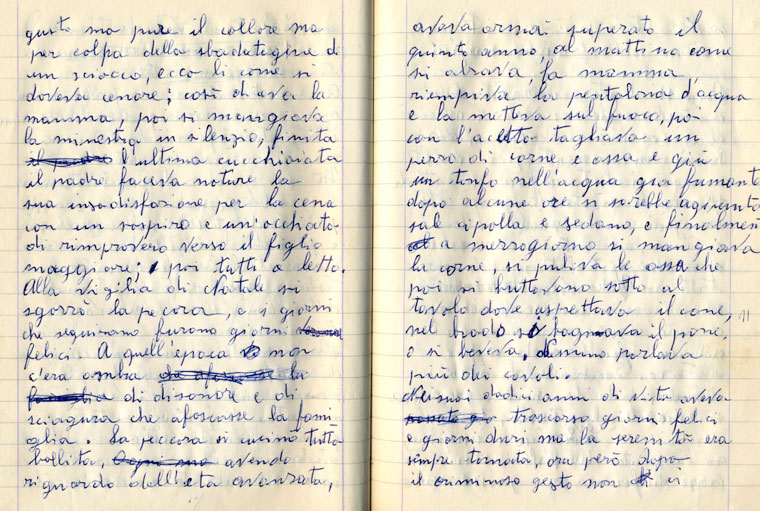 gusto ma pure il collore ma
per colpa della sbadatagine di
un sciocco, ecco li come si
doveva cenare; così diceva la
mamma, poi si mangiava
la minestra in silenzio, finita
l'ultima cucchiaiata
il padre faceva notare la
sua insodisfazione per la cena
con un sospiro e un'occhiata
di rimprovero verso il figlio
maggiore; poi tutti a letto.
Alla vigilia di Natale si
sgozzò la pecora, e i giorni
che seguirono furono giorni
felici A quell'epoca non
c'era ombra
di disonore e di
sciagura che afoscasse la fami
glia. La peccora si cucinò tutta
bollita, avendo
riguardo dell'età avanzata,
aveva ormai superato il
quinto anno, al mattino come
si alzava, la mamma,
riempiva la pentolona d'acqua
e la metteva sul fuoco, poi
con l'acetto tagliava un
pezzo di carne e ossa e giù
un tonfo nell'acqua già fumante
dopo alcune ore si sarebbe agiunto
sale cipolla e sedano, e finalmente
a mezzogiorno si mangiava
la carne, si puliva le ossa che
poi si buttavano sotto al
tavolo dove aspettava il cane,
nel brodo si bagnava il pane,
o si beveva. Nessuno parlava
più dei cavoli.
Nei suoi dodici anni di vita aveva
trascorso giorni felici
e giorni duri ma la serenità era
sempre tornata, ora però dopo
il criminoso gesto non ci